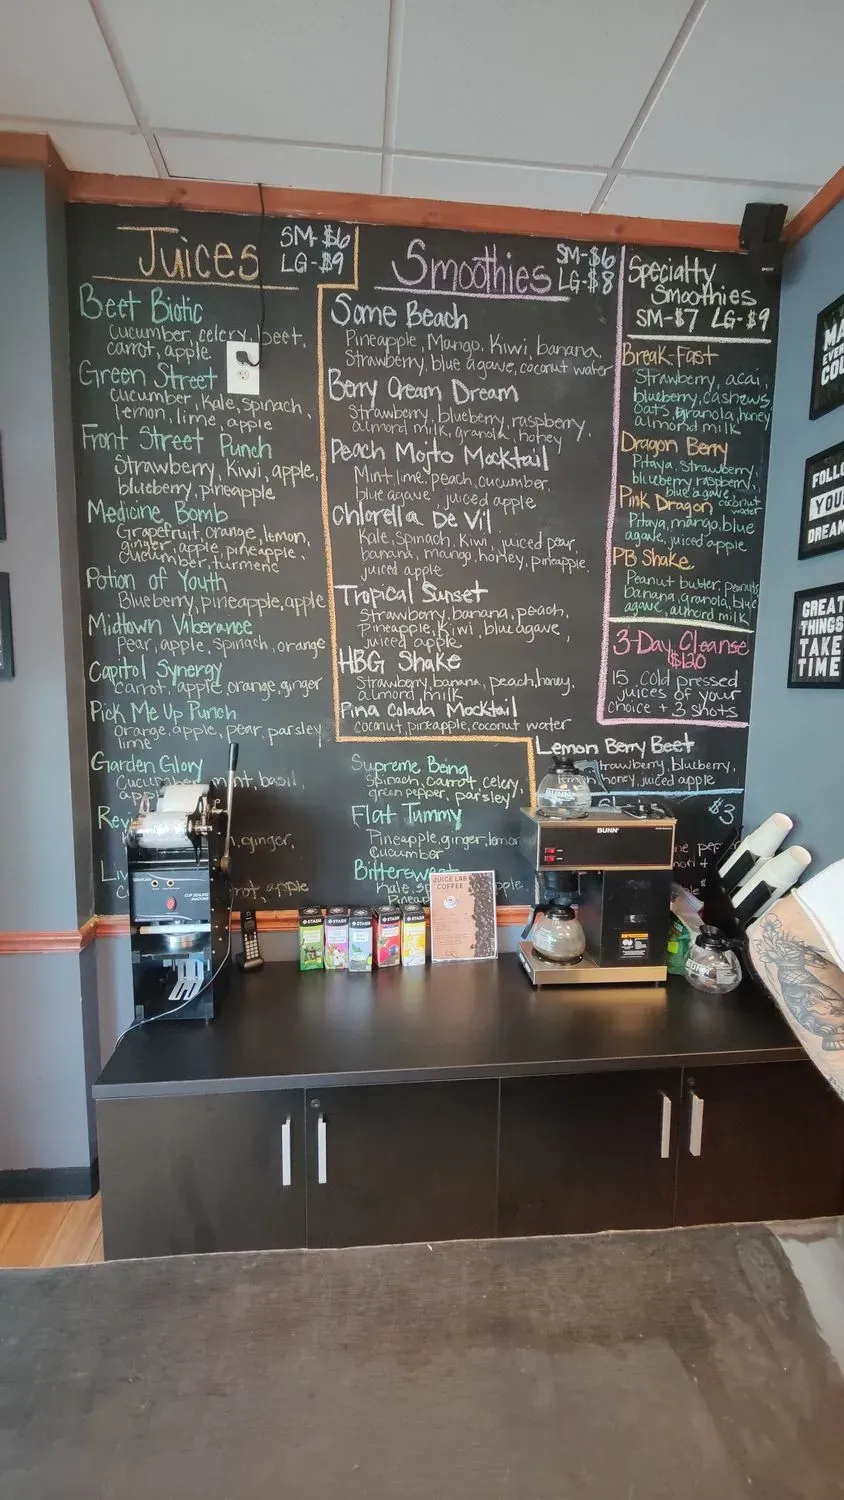 Juices
SM-$6
LG-$9
Beet Biotic
cucumber, celery, beet,
carrot, apple
Green Street
cucumber, kale, spinach,
lemon, lime, apple
Front Street Punch
Strawberry, Kiwi, apple,
blueberry, pineapple
Medicine Bomb
Grapefruit, orange, lemon,
ginger, apple, pineapple,
cucumber, turmeric
Potion of Youth
Blueberry, pineapple, apple
Midtown Viberance
Pear, apple, spinach, orange
Capitol Synergy
carrot, apple, orange, ginger
Pick Me Up Punch
Orange, apple, pear, parsley
lime
Garden Glory
mint, basil,
Rev
ginger,
Liv
apple
Supreme Being
Spinach, carrot, celery,
green pepper, parsley
Flat Tummy
Pineapple, ginger, lemon
cucumber
Bittersweet
Kale,
Smoothies
SM-$6
LG-$8
Some Beach
Pineapple, Mango, Kiwi, banana,
Strawberry, blue agave, coconut water
Berry Cream Dream
Strawberry, blueberry, raspberry,
almond milk, granola, honey
Peach Mojto Mocktail
Mint, lime, peach, cucumber,
blue agave, juiced apple
Chlorella De Vil
Kale, Spinach, Kiwi, juiced pear,
banana, mango, honey, pineapple,
juiced apple
Tropical Sunset
Strawberry, banana, peach,
Pineapple, Kiwi, blue agave,
juiced apple
HBG Shake
Strawberry, banana, peach, honey,
almond milk
Pina Colada Mocktail
coconut, pineapple, coconut water
Lemon Berry Beet
trawberry, blueberry,
honey, juiced apple
Specialty
Smoothies
SM-$7 LG-$9
Break-Fast
Strawberry, acai,
blueberry, cashews
oats, granola, honey
almond milk
Dragon Berry
Pitaya, Strawberry,
blueberry, raspberry,
blue agave, coconut
water
Pink Dragon
Pitaya, mango, blue
agave, juiced apple
PB Shake
Peanut butter, peanuts
banana, granola, blue
agave, almond milk
3-Day Cleanse
$120
15 cold pressed
juices of your
choice + 3 shots
$3
JUICE LAB
COFFEE
STASH
STASH
STASH
STASH
STASH
BUNN
BUNN
FOLLO
YOUR
DREAM
GREAT
THINGS
TAKE
TIME